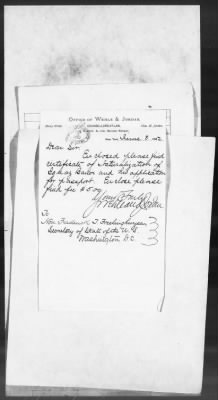 OFFICE OF WEHLE & JORDAN
COUNSELLORS AT LAW,
New York, June 8 1882
Dear Sir
Enclosed please find
certificate of Naturalization of
and his application
for passport. Enclose please
find for $5.00
Yours Truly
Wehle & Jordan
To
Hon. Frederick T. Frelinghuysen
Secretary of State of the U.S.
Washington D.C.